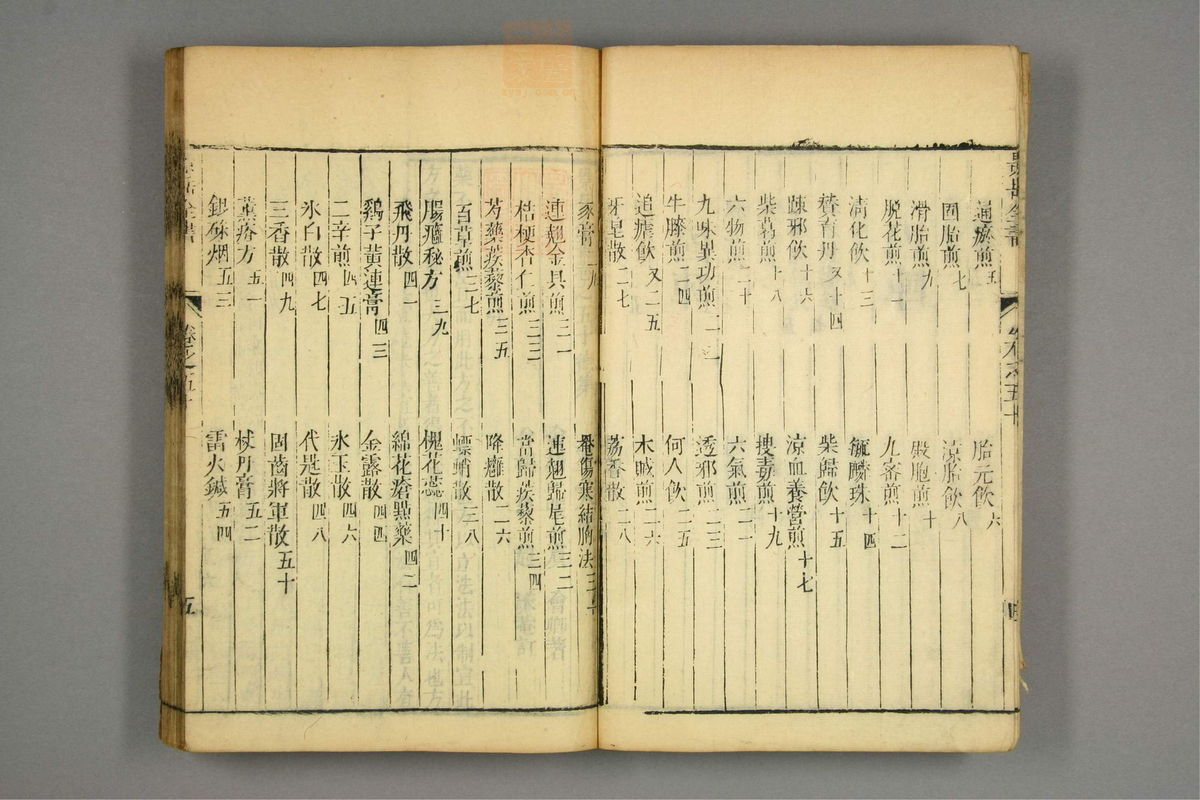 景岳全書 卷之五十 四
通瘀煎 五 胎元飲 六
固胎煎 七 涼胎飲 八
滑胎煎 九 殿胞煎 十
脫花煎 十一 九蜜煎 十二
清化飲 十三 毓麟珠 十四
贊育丹 又十四 柴歸飲 十五
疎邪飲 十六 涼血養營煎 十七
柴葛煎 十八 搜毒煎 十九
六物煎 二十 六氣煎 二一
九味異功煎 二二 透邪煎 二三
牛膝煎 二四 何人飲 二五
追瘧飲 又二五 木賊煎 二六
牙皂散 二七 荔香散 二八
豕膏 二九 罨傷寒結胸法 三十
連翹金貝煎 三一 連翹歸尾煎 三二
桔梗杏仁煎 三三 當歸蒺藜煎 三四
芍藥蒺藜煎 三五 降癰散 三六
百草煎 三七 螵蛸散 三八
腸癰秘方 三九 槐花蕊 四十
飛丹散 四一 綿花瘡點藥 四二
雞子黃連膏 四三 金露散 四四
二辛煎 四五 氷玉散 四六
氷白散 四七 代匙散 四八
三香散 四九 固齒將軍散 五十
薰疥方 五一 杖丹膏 五二
銀硃烟 五三 雷火鍼 五四
景岳全書 卷之五十 五